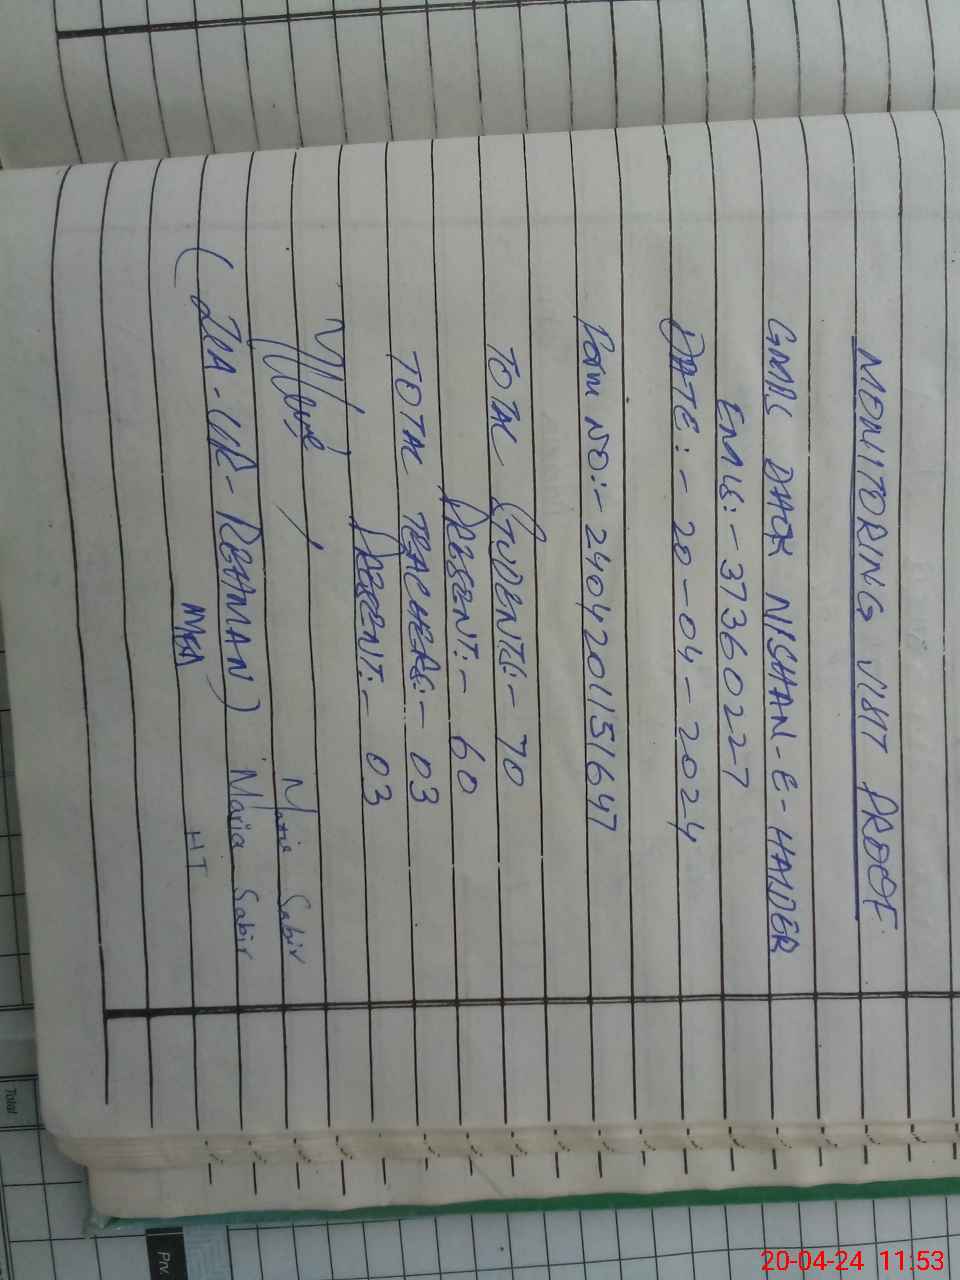 MONITORING VISIT PROOF
GMPS DHOK NISHAN-E-HAIDER
EMIS:- 37360227
DATE:- 20-04-2024
Form NO:- 2404201151647
TOTAL STUDENTS:- 70
PRESENT:- 60
TOTAL TEACHERS:- 03
PRESENT:- 03
Maria Sabir
(ZIA-UR-REHMAN) Maria Sabir
MEA HT
Total
Prv.
20-04-24 11:53